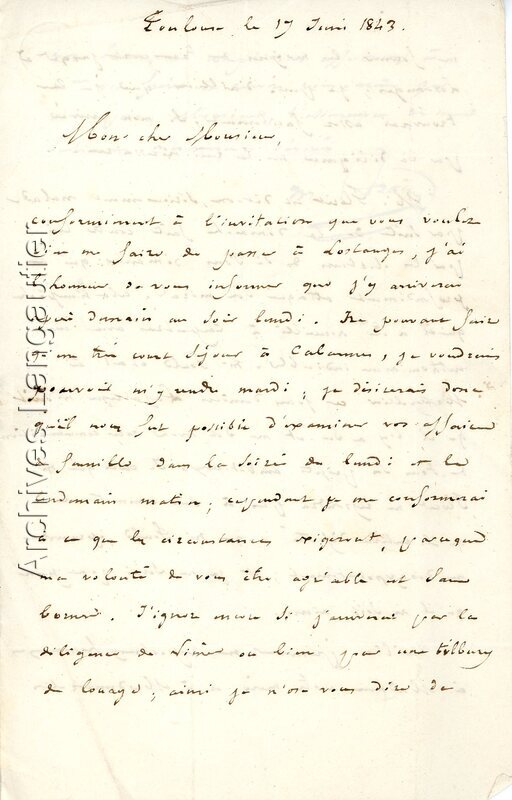 Toulouse le 17 Juin 1843.
Mon cher Monsieur,
conformément à l'invitation que vous voulez
bien me faire de passer à Lostanges, j'ai
l'honneur de vous informer que j'y arriverai
demain au soir lundi. Ne pouvant faire
qu'un très court séjour à Cabannes, je voudrais
pouvoir m'y rendre mardi ; je désirerais donc
qu'il nous fut possible d'examiner vos affaires
de famille dans la soirée de lundi et le
lendemain matin ; cependant je me conformerai
à ce que les circonstances exigeront, parceque
ma volonté de vous être agréable est sans
bornes. J'ignore encore si j'arriverai par la
diligence de ou bien par une tilbury
de louage ; ainsi je n'ose vous dire de
Archives Lengautier